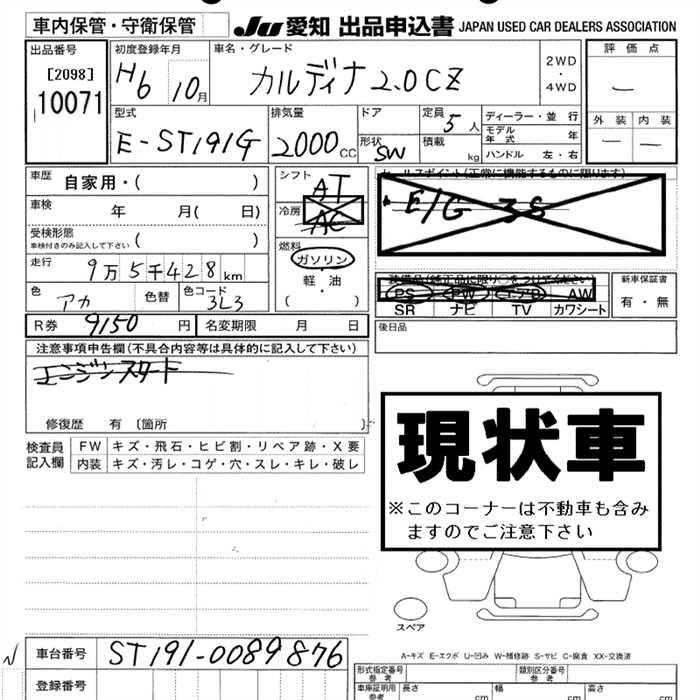 車内保管・守衛保管
JU 愛知 出品申込書 JAPAN USED CAR DEALERS ASSOCIATION
出品番号
[2098]
10071
初度登録年月
H6 10月
車名・グレード
カルディナ 2.0 CZ
2WD
・
4WD
評価点
—
外装 内装
— —
型式
E-ST191G
排気量
2000cc
ドア
形状
SW
定員
5人
積載
kg
ディーラー・並行
モデル年式 年
ハンドル 左・右
車歴 自家用・( )
車検 年 月( 日)
受検形態
車検付きのみ記入して下さい ( )
走行 9万5千428km
色 アカ 色替 色コード 3L3
R券 9150円 名変期限 月 日
シフト
AT
冷房
AC
燃料
ガソリン
軽・油
( )
セールスポイント(正常に機能するものに限ります)
E/G 3S
装備品(純正品に限り○をつけてください)
PS PW エアB AW
SR ナビ TV カワシート
新車保証書
有・無
後日品
注意事項申告欄(不具合内容等は具体的に記入して下さい)
エンジンスタート
修復歴 有 〔箇所 〕
検査員記入欄
FW キズ・飛石・ヒビ割・リペア跡・X要
内装 キズ・汚レ・コゲ・穴・スレ・キレ・破レ
現状車
※このコーナーは不動車も含み
ますのでご注意下さい
スペア
A-キズ E-エクボ U-凹み W-補修跡 S-サビ C-腐食 XX-交換済
車台番号 ST191-0089876
登録番号
形式指定番号
参考
類別区分番号
参考
車庫証明用
参考
長さ cm
幅 cm
高さ cm